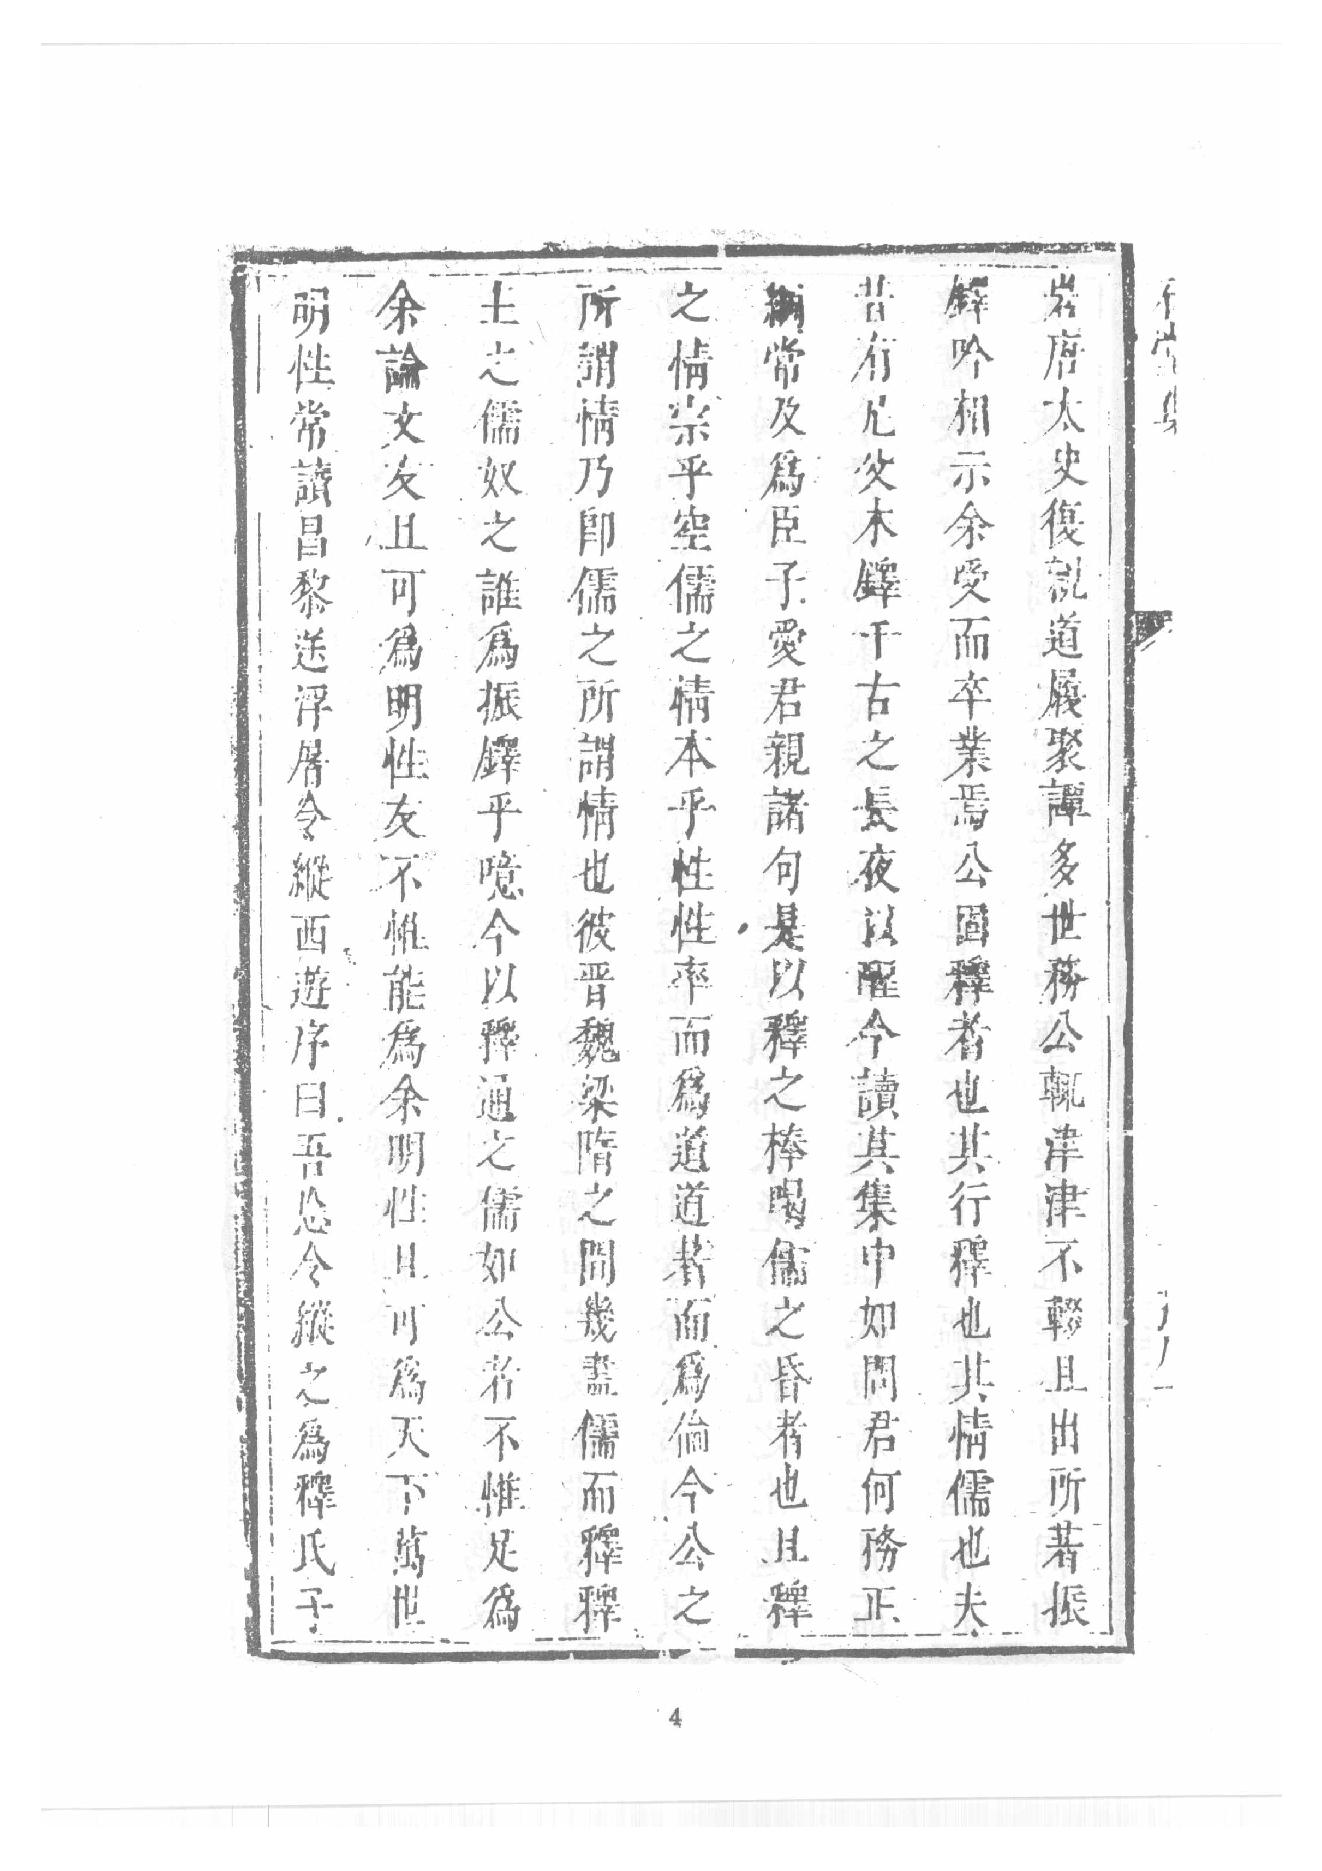 岩唐太史復説道履聚譚多世務公輒津津不輟且出所著振
鐸吟相示余受而卒業焉公固釋者也其行釋也其情儒也夫
昔有尼父木鐸千古之長夜以醒今讀其集中如問君何務正
綱常及爲臣子愛君親諸句是以釋之棒喝儒之昏者也且釋
之情宗乎空儒之情本乎性性率而爲道道者而爲倫今公之
所謂情乃卽儒之所謂情也彼晋魏梁隋之間幾盡儒而釋釋
土之儒奴之誰爲振鐸乎噫今以釋通之儒如公者不惟足爲
余論文友且可爲明性友不惟能爲余明性且可爲天下萬世
明性常讀昌黎送浮屠令縱西遊序曰吾忩令縱之爲釋氏子
4